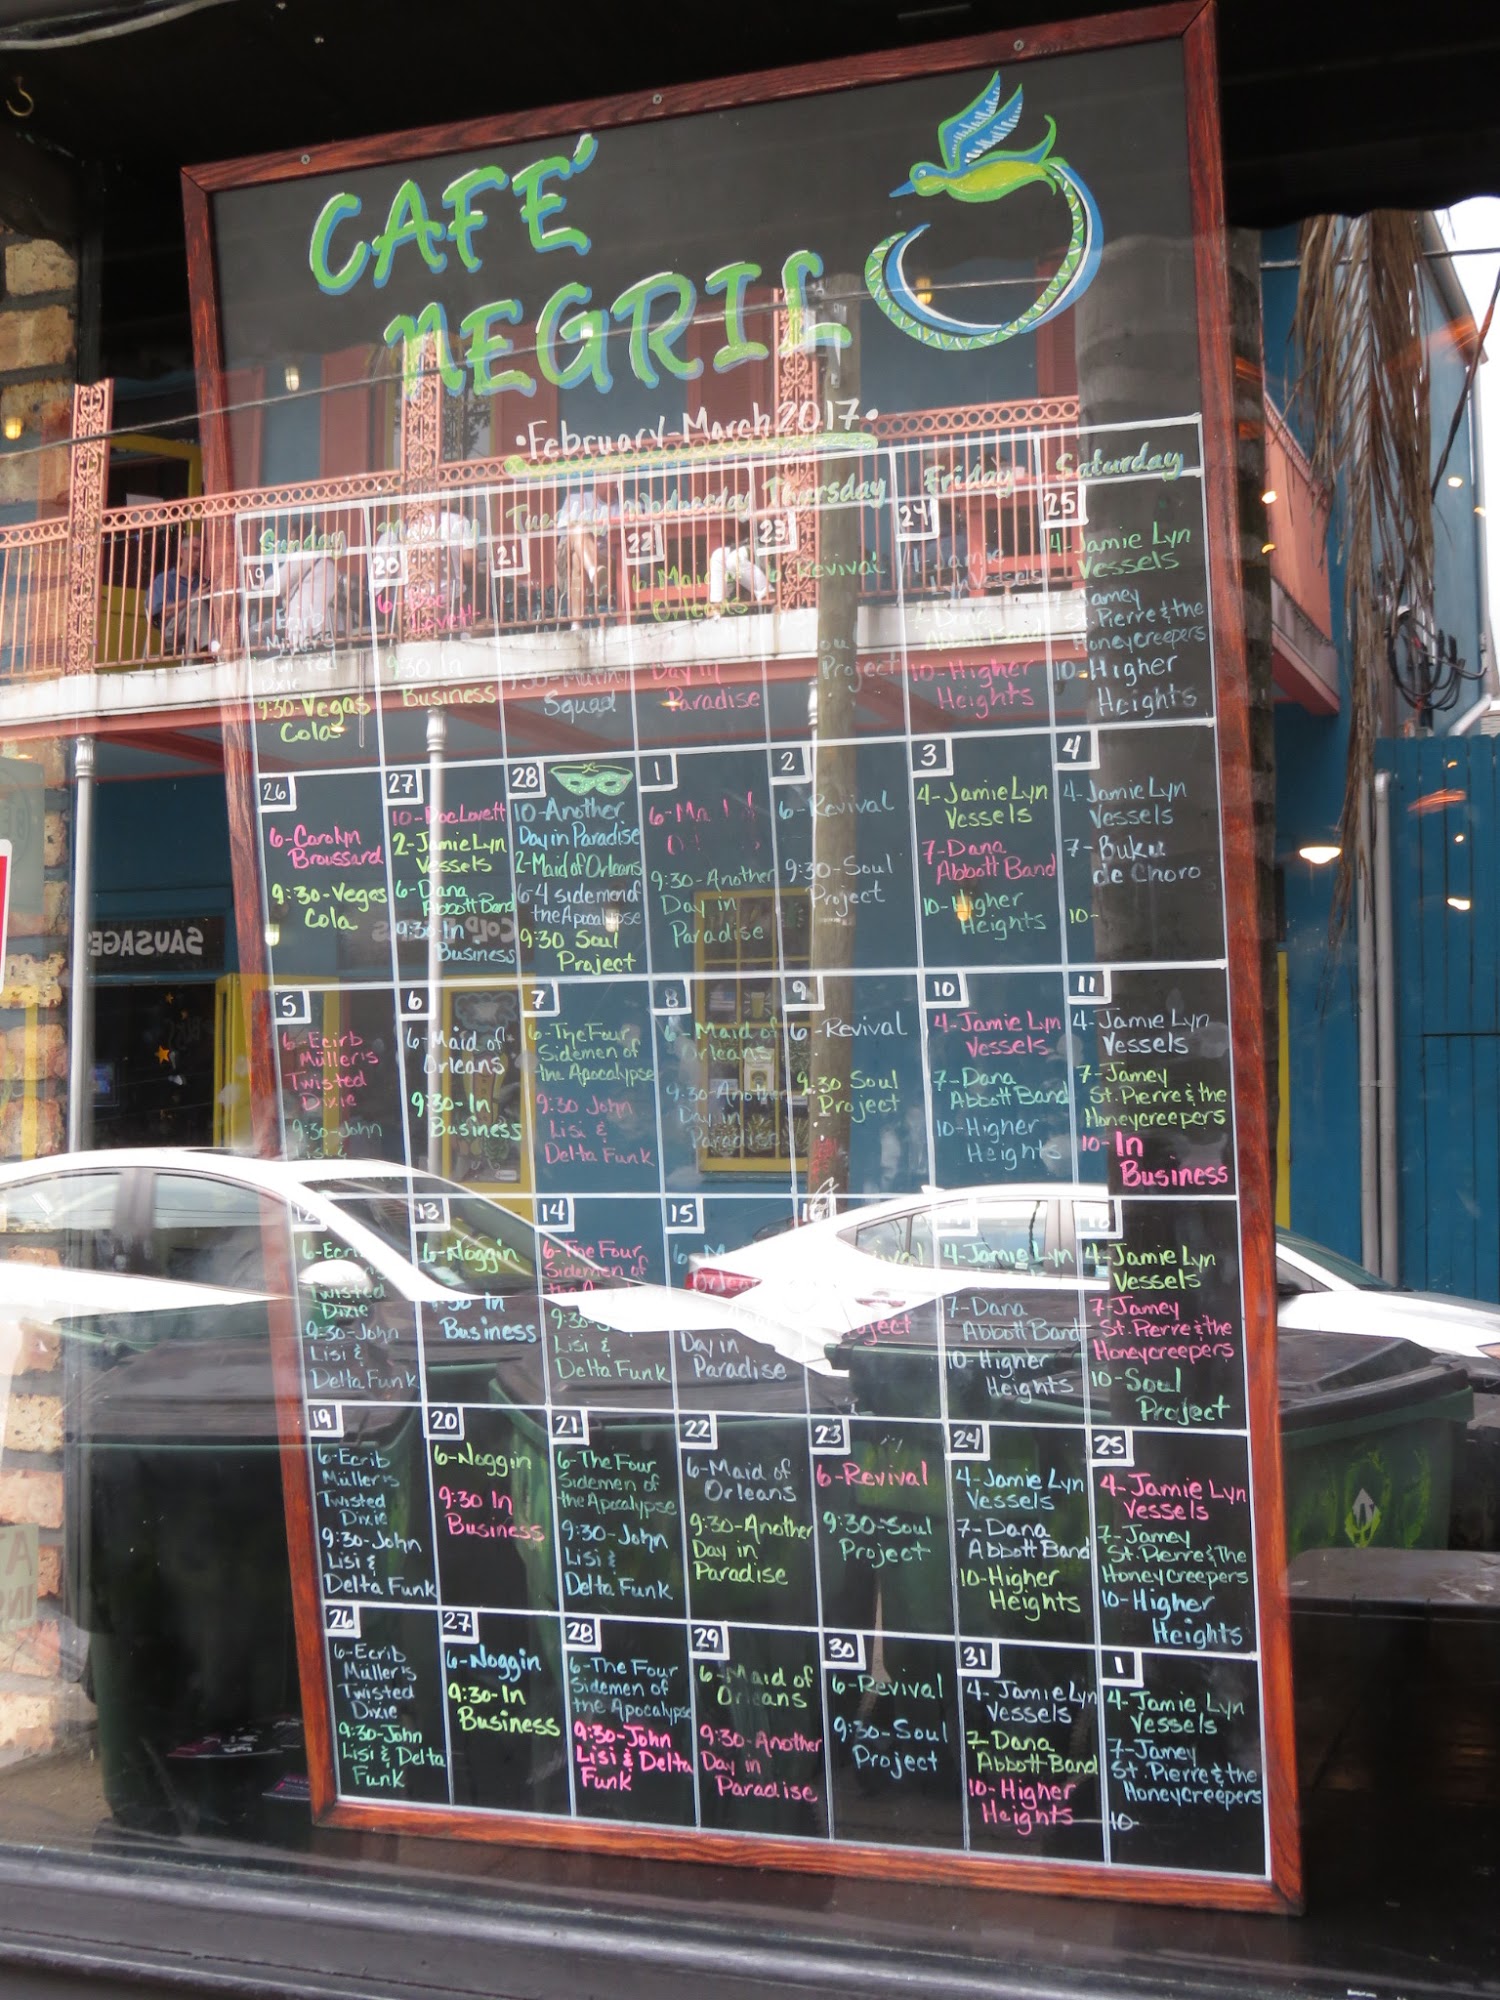 CAFE'
NEGRIL
•February-March 2017•
Sunday
Monday
Tuesday
Wednesday
Thursday
Friday
Saturday
19
Ecrib
Müller's
Twisted
Dixie
9:30-Vegas
Cola
20
Lovett
9:30 In
Business
21
Squad
22
6-Maid of
Orleans
Day in
Paradise
23
6-Revival
Soul
Project
24
4-Jamie
Lyn Vessels
7-Dana
Abbott Band
10-Higher
Heights
25
4-Jamie Lyn
Vessels
7-Jamey
St. Pierre & the
Honeycreepers
10-Higher
Heights
26
6-Carolyn
Broussard
9:30-Vegas
Cola
27
10-Doc Lovett
2-Jamie Lyn
Vessels
6-Dana
Abbott Band
9:30-In
Business
28
10-Another
Day in Paradise
2-Maid of Orleans
6-4 sidemen of
the Apocalypse
9:30 Soul
Project
1
9:30-Another
Day in
Paradise
2
6-Revival
9:30-Soul
Project
3
4-Jamie Lyn
Vessels
7-Dana
Abbott Band
10-Higher
Heights
4
4-Jamie Lyn
Vessels
7-Buku
de Choro
10-
5
6-Ecrib
Müller's
Twisted
Dixie
9:30-John
Lisi &
6
6-Maid of
Orleans
9:30-In
Business
7
6-The Four
Sidemen of
the Apocalypse
9:30 John
Lisi &
Delta Funk
8
6-Maid of
Orleans
9:30-Another
Day in
Paradise
9
6-Revival
9:30 Soul
Project
10
4-Jamie Lyn
Vessels
7-Dana
Abbott Band
10-Higher
Heights
11
4-Jamie Lyn
Vessels
7-Jamey
St. Pierre & the
Honeycreepers
10-In
Business
12
6-Ecrib
Twisted
Dixie
9:30-John
Lisi &
Delta Funk
13
6-Noggin
9:30 In
Business
14
6-The Four
Sidemen of
the
9:30-John
Lisi &
Delta Funk
15
Orleans
Day in
Paradise
16
Revival
Project
17
4-Jamie Lyn
7-Dana
Abbott Band
10-Higher
Heights
18
4-Jamie Lyn
Vessels
7-Jamey
St. Pierre & the
Honeycreepers
10-Soul
Project
19
6-Ecrib
Müller's
Twisted
Dixie
9:30-John
Lisi &
Delta Funk
20
6-Noggin
9:30 In
Business
21
6-The Four
Sidemen of
the Apocalypse
9:30-John
Lisi &
Delta Funk
22
6-Maid of
Orleans
9:30-Another
Day in
Paradise
23
6-Revival
9:30-Soul
Project
24
4-Jamie Lyn
Vessels
7-Dana
Abbott Band
10-Higher
Heights
25
4-Jamie Lyn
Vessels
7-Jamey
St. Pierre & the
Honeycreepers
10-Higher
Heights
26
6-Ecrib
Müller's
Twisted
Dixie
9:30-John
Lisi & Delta
Funk
27
6-Noggin
9:30-In
Business
28
6-The Four
Sidemen of
the Apocalypse
9:30-John
Lisi & Delta
Funk
29
6-Maid of
Orleans
9:30-Another
Day in
Paradise
30
6-Revival
9:30-Soul
Project
31
4-Jamie Lyn
Vessels
7-Dana
Abbott Band
10-Higher
Heights
1
4-Jamie Lyn
Vessels
7-Jamey
St. Pierre & the
Honeycreepers
10-
SAUSAGE